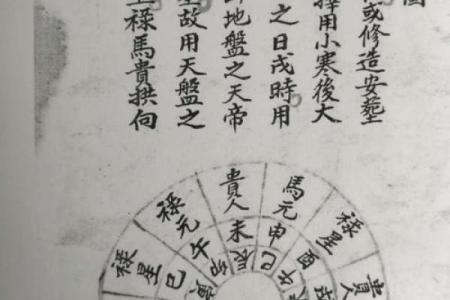 或修造安塟
擇用小寒後大
之日戌時用
地盤之天帝
故用天盤之
祿馬貴拱向
祿星 祿元 貴人 馬元 祿星 貴人
巳 午 未 申 酉
寅 卯 辰 巳 午